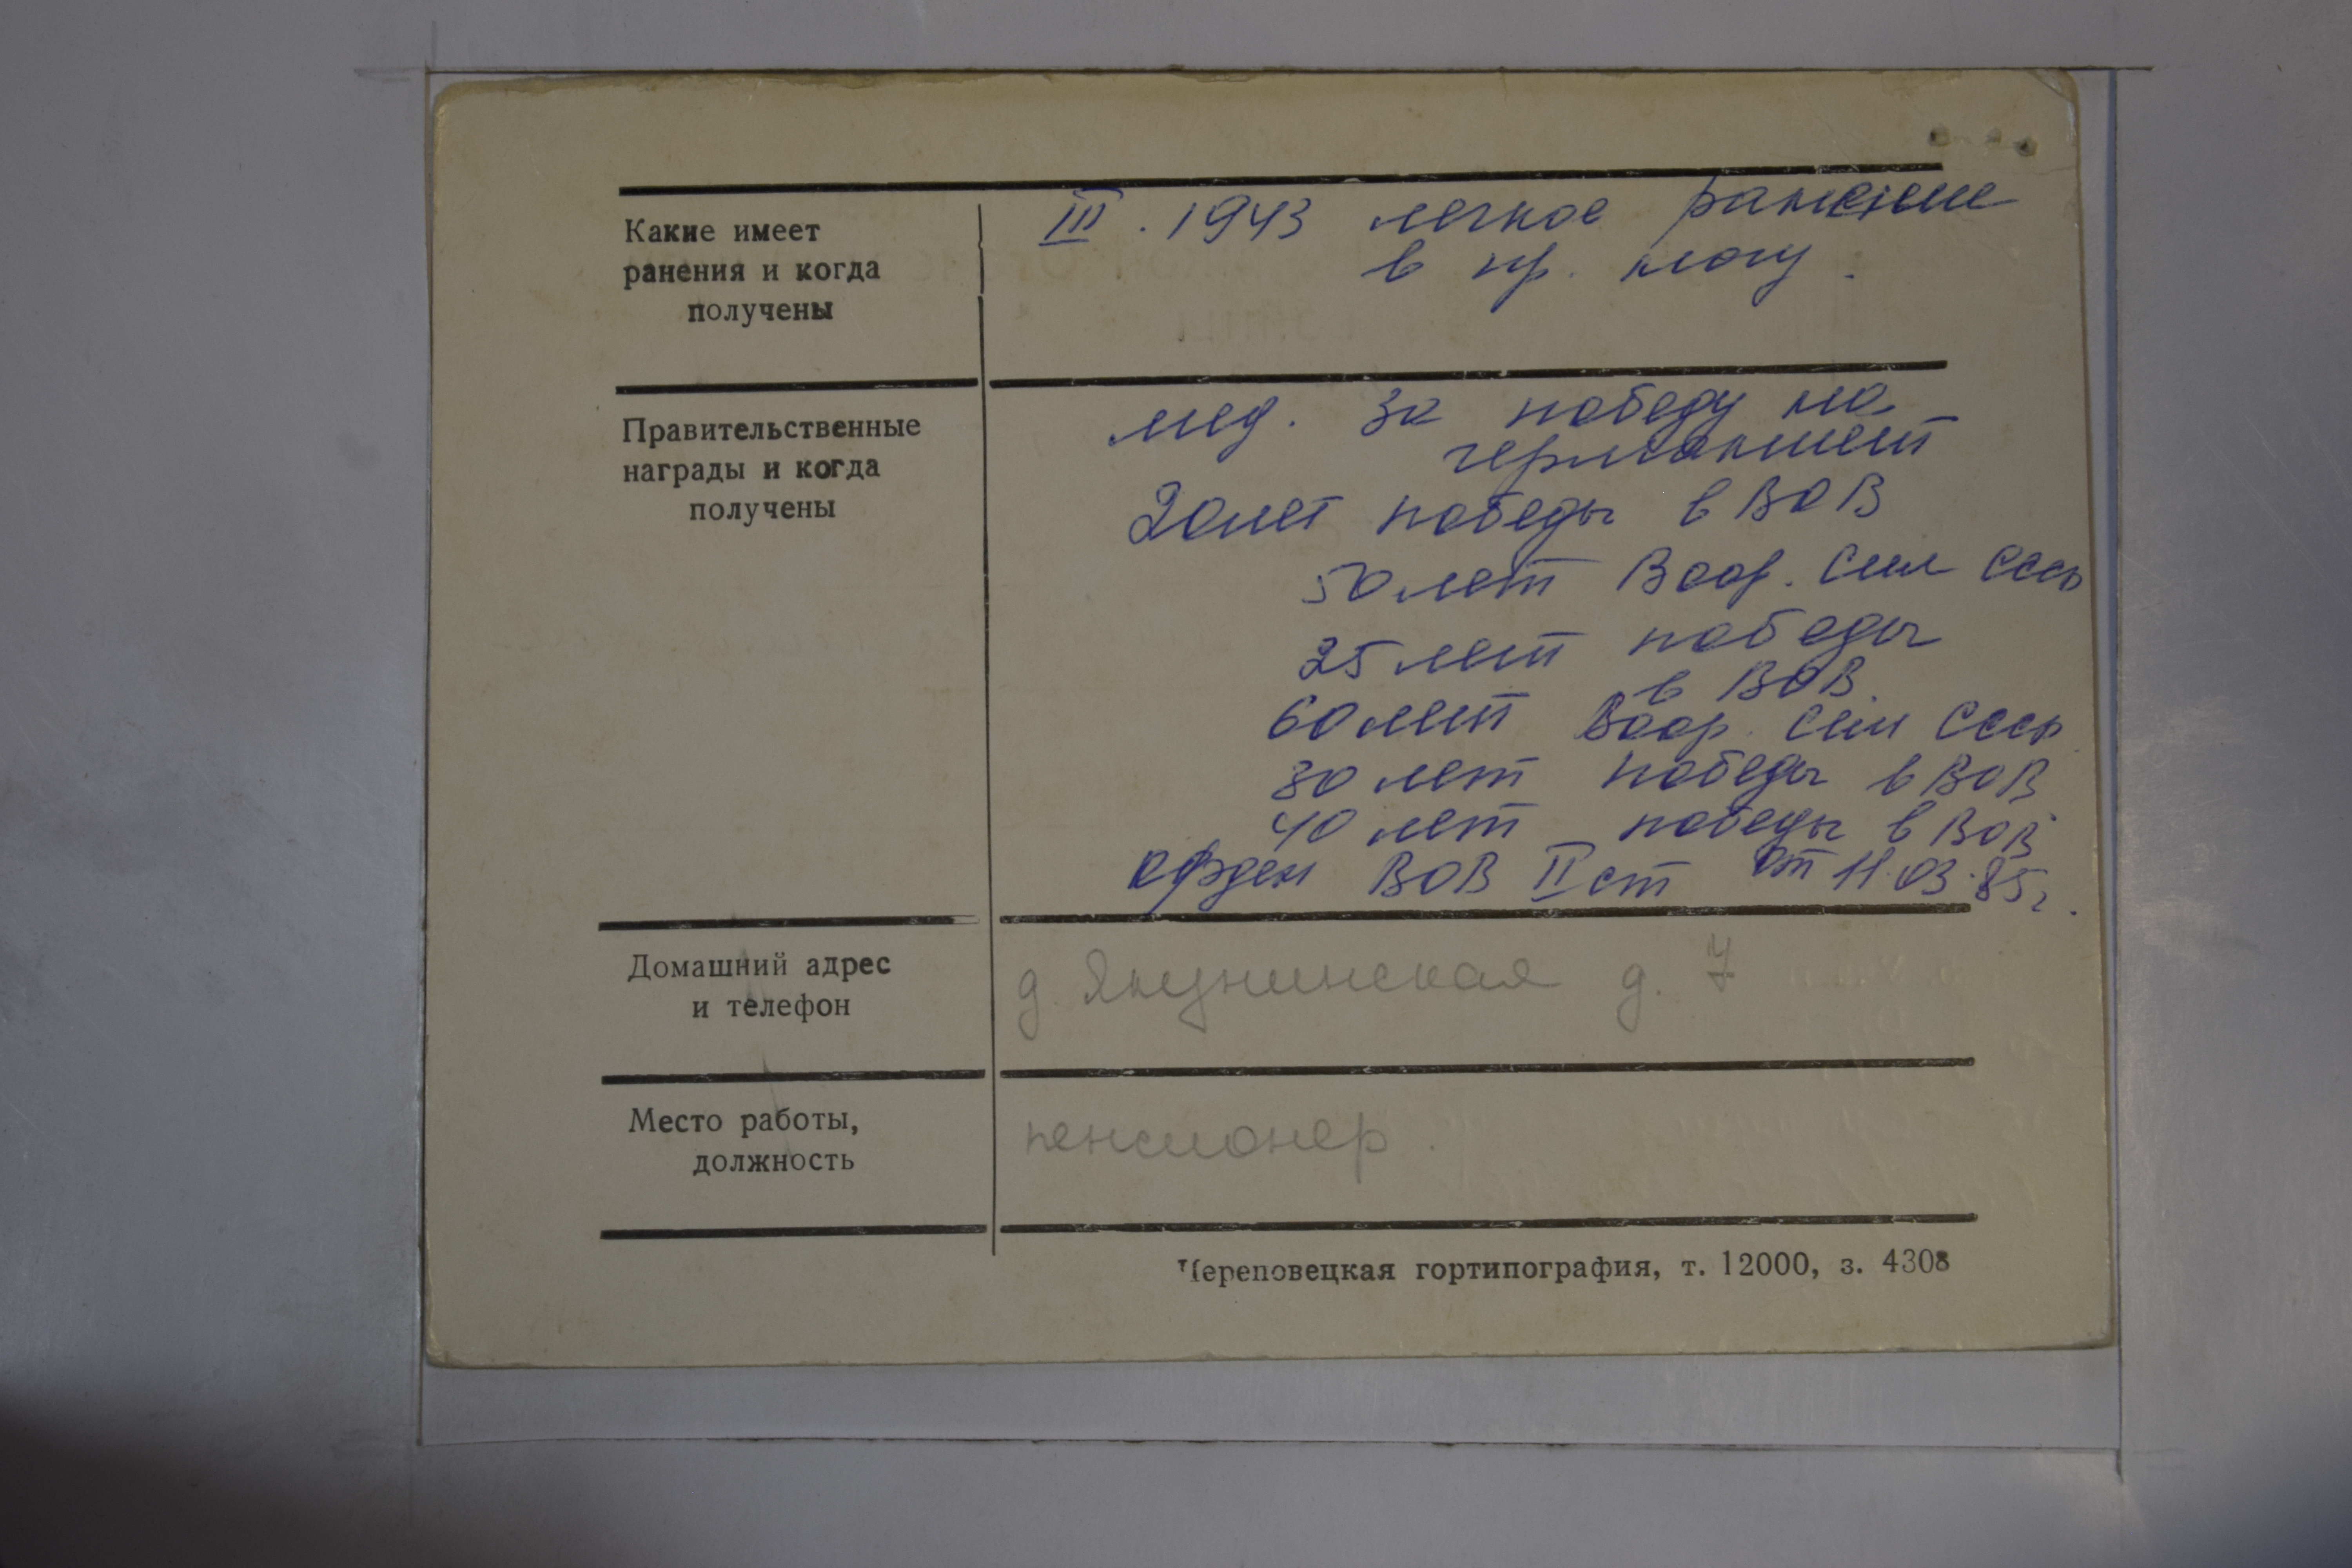 Какие имеет
ранения и когда
получены
III. 1943 легкое ранение
в пр. ногу.
Правительственные
награды и когда
получены
мед. За победу на
германией
20 лет победы в ВОВ
50 лет Воор. Сил СССР
25 лет победы
в ВОВ
60 лет Воор. Сил СССР
30 лет победы в ВОВ
40 лет победы в ВОВ
орден ВОВ II ст от 11.03.85г.
Домашний адрес
и телефон
д. Якунинская д. 7
Место работы,
должность
пенсионер.
Череповецкая гортипография, т. 12000, з. 4308